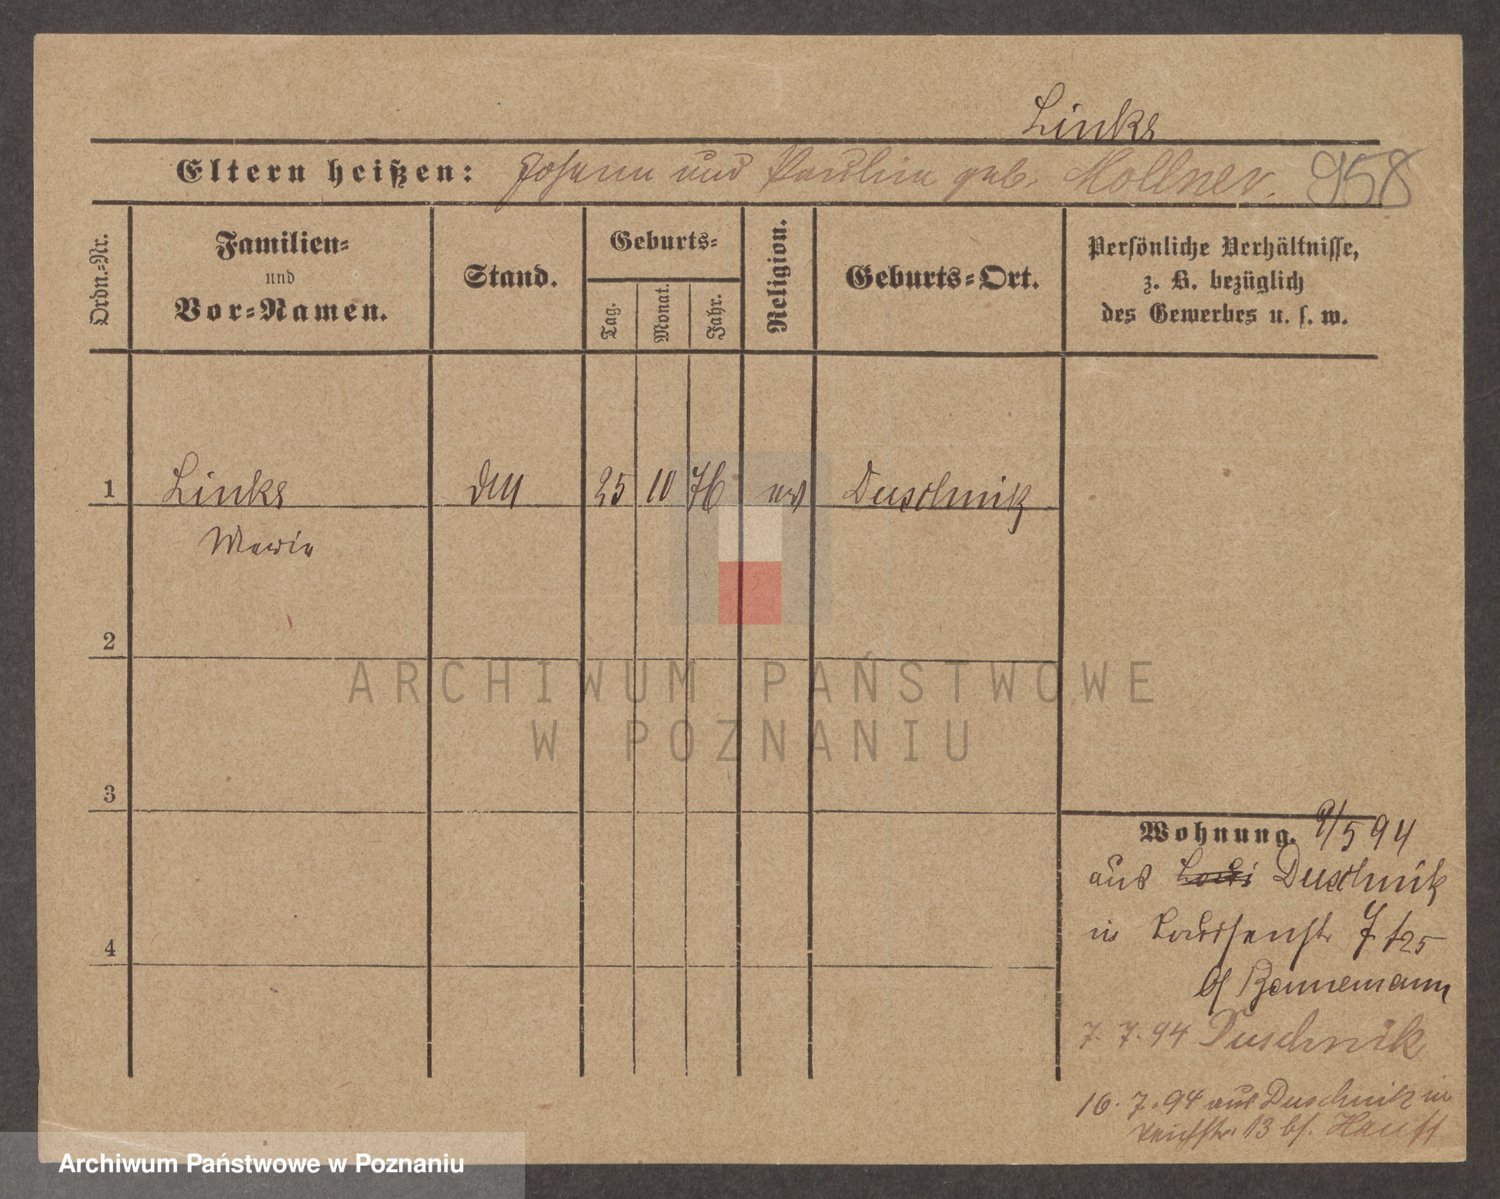 Links
Eltern heißen: Johann und Paulina geb. Mollner. 958
Ordn.=Nr.
Familien=
und
Vor=Namen.
Stand.
Geburts=
Tag.
Monat.
Jahr.
Religion.
Geburts=Ort.
Persönliche Verhältnisse,
z. B. bezüglich
des Gewerbes u. s. w.
1 Links 25 10 76 ev Duschnik
Maria
2
3
4
Wohnung. 9/5 94
aus Duschnik
in
bei Bennemann
7. 7. 94 Duschnik
16. 7. 94 aus Duschnik in
13 bei
ARCHIWUM PAŃSTWOWE
W POZNANIU
Archiwum Państwowe w Poznaniu